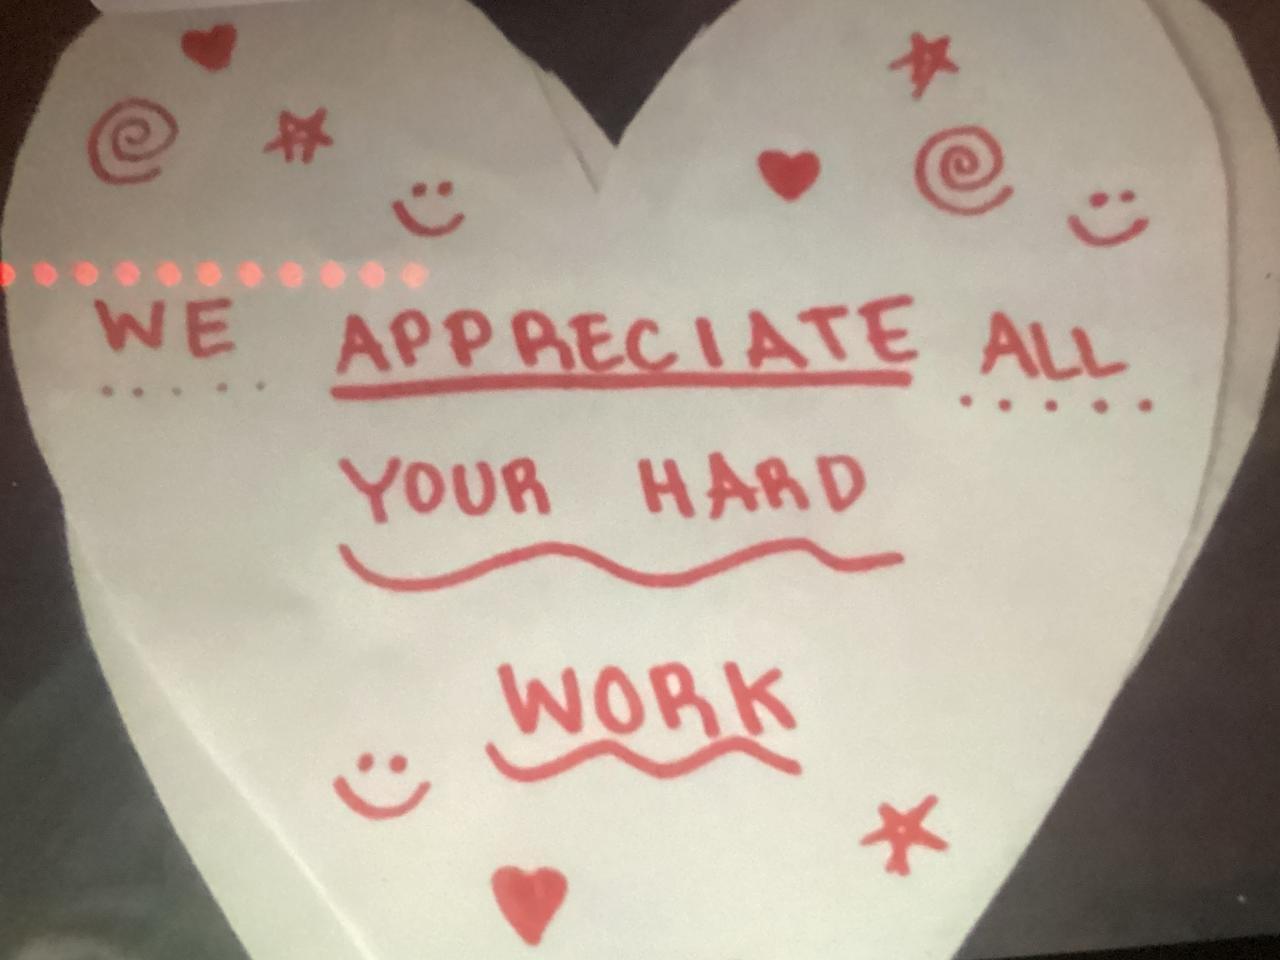 WE APPRECIATE ALL
YOUR HARD
WORK